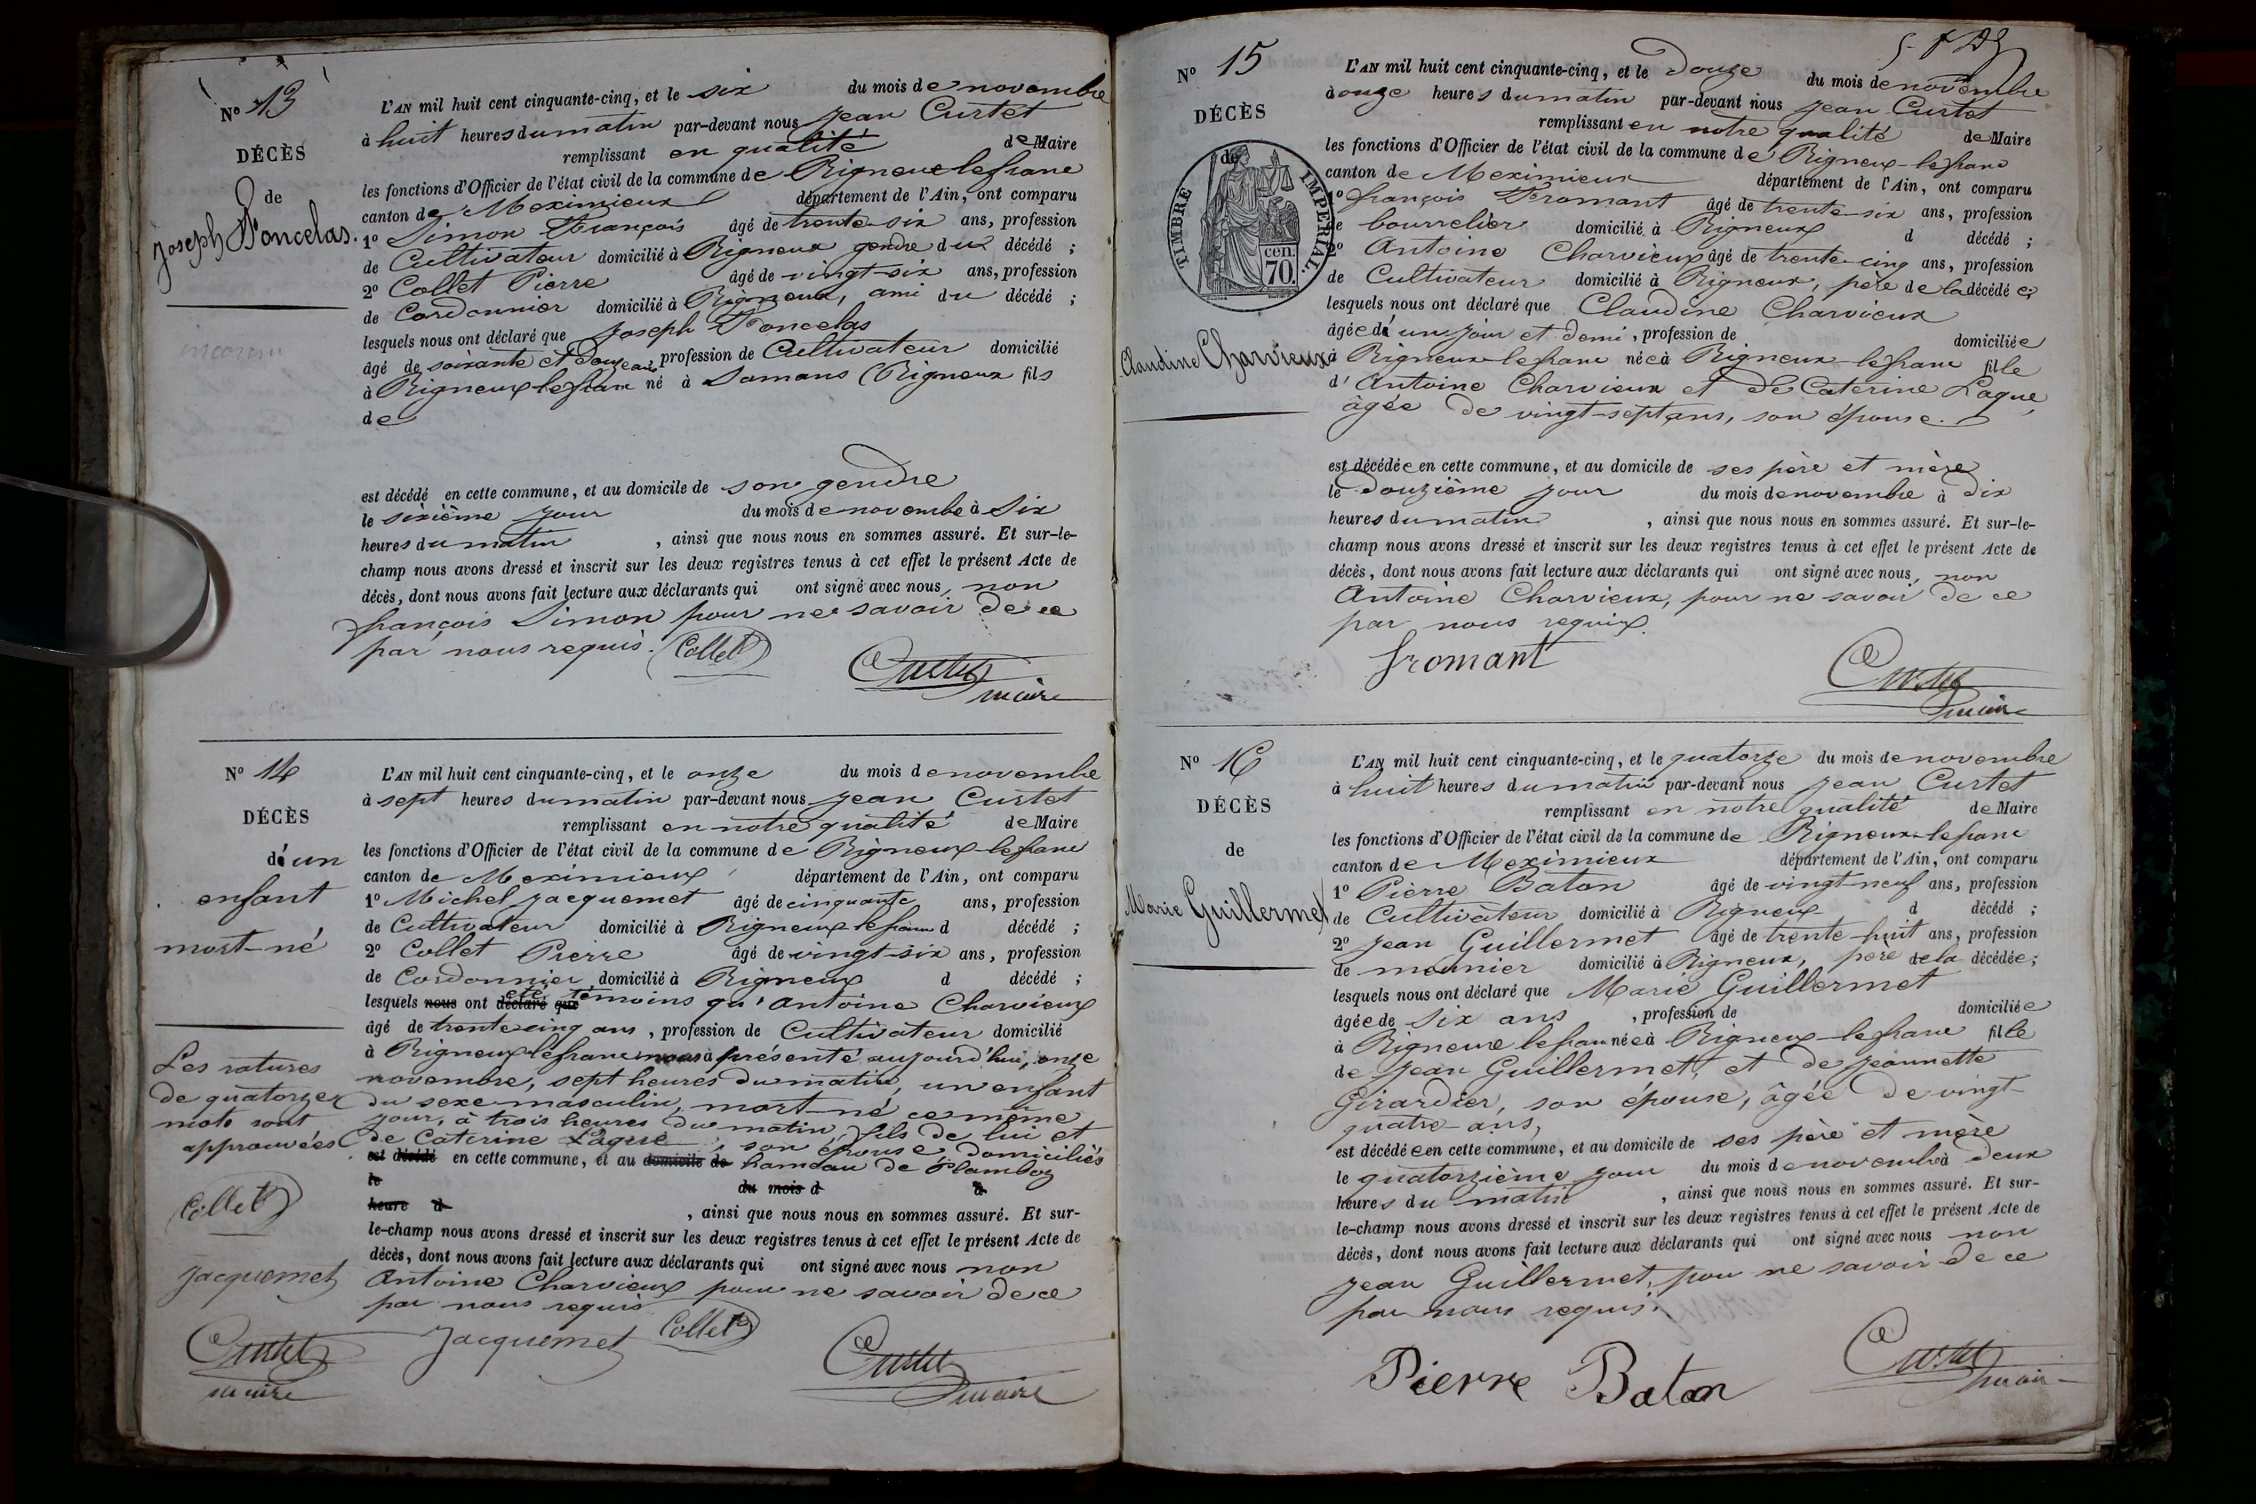 N° 13
DÉCÈS
de
Joseph Poncelas.
L'AN mil huit cent cinquante-cinq, et le six du mois de novembre
à huit heures du matin par-devant nous Jean Curtet
remplissant en qualité de Maire
les fonctions d'Officier de l'état civil de la commune de Rigneux le franc
canton de Meximieux département de l'Ain, ont comparu
1° Simon François âgé de trente-six ans, profession
de Cultivateur domicilié à Rigneux gendre du décédé ;
2° Collet Pierre âgé de vingt-six ans, profession
de Cordonnier domicilié à Rigneux, ami du décédé ;
lesquels nous ont déclaré que Joseph Poncelas
âgé de soixante et douze ans, profession de Cultivateur domicilié
à Rigneux-le franc né à Samans (Rigneux fils
de
est décédé en cette commune, et au domicile de son gendre
le sixième jour du mois de novembre à Six
heures du matin , ainsi que nous nous en sommes assuré. Et sur-le-
champ nous avons dressé et inscrit sur les deux registres tenus à cet effet le présent Acte de
décès, dont nous avons fait lecture aux déclarants qui ont signé avec nous, non
françois Simon pour ne savoir de ce
par nous requis. Collet
Curtet
maire
N° 14
DÉCÈS
d'un
enfant
mort-né
Les ratures
de quatorze
mots sont
approuvées
Collet
Jacquemet
Curtet
maire
L'AN mil huit cent cinquante-cinq, et le onze du mois de novembre
à sept heures du matin par-devant nous Jean Curtet
remplissant en notre qualité de Maire
les fonctions d'Officier de l'état civil de la commune de Rigneux-le franc
canton de Meximieux département de l'Ain, ont comparu
1° Michel Jacquemet âgé de cinquante ans, profession
de Cultivateur domicilié à Rigneux le franc d décédé ;
2° Collet Pierre âgé de vingt-six ans, profession
de Cordonnier domicilié à Rigneux d décédé ;
lesquels nous ont déclaré que été témoins qu'Antoine Charvieux
âgé de trente cinq ans, profession de Cultivateur domicilié
à Rigneux-le franc nous a présenté aujourd'hui, onze
novembre, sept heures du matin, un enfant
du sexe masculin, mort-né ce même
jour, à trois heures du matin, fils de lui et
de Caterine Lague, son épouse domiciliés
est décédé en cette commune, et au domicile de hameau de Plamboz
le du mois d à
heure d , ainsi que nous nous en sommes assuré. Et sur-
le-champ nous avons dressé et inscrit sur les deux registres tenus à cet effet le présent Acte de
décès, dont nous avons fait lecture aux déclarants qui ont signé avec nous non
Antoine Charvieux pour ne savoir de ce
par nous requis
Jacquemet Collet
Curtet
maire
N° 15
DÉCÈS
de
TIMBRE IMPÉRIAL
cen.
70.
Claudine Charvieux
L'AN mil huit cent cinquante-cinq, et le douze du mois de novembre
à onze heures du matin par-devant nous Jean Curtet
remplissant en notre qualité de Maire
les fonctions d'Officier de l'état civil de la commune de Rigneux-le franc
canton de Meximieux département de l'Ain, ont comparu
1° françois Fromant âgé de trente-six ans, profession
de bourrelier domicilié à Rigneux d décédé ;
2° Antoine Charvieux âgé de trente-cinq ans, profession
de Cultivateur domicilié à Rigneux, père de la décédée
lesquels nous ont déclaré que Claudine Charvieux
âgée d'un jour et demi, profession de domiciliée
à Rigneux-le franc née à Rigneux-le franc fille
d'Antoine Charvieux et de Caterine Lague,
âgée de vingt-sept ans, son épouse.
est décédée en cette commune, et au domicile de ses père et mère
le douzième jour du mois de novembre à dix
heures du matin , ainsi que nous nous en sommes assuré. Et sur-le-
champ nous avons dressé et inscrit sur les deux registres tenus à cet effet le présent Acte de
décès, dont nous avons fait lecture aux déclarants qui ont signé avec nous, non
Antoine Charvieux, pour ne savoir de ce
par nous requis.
fromant
Curtet
maire
N° 16
DÉCÈS
de
Marie Guillermet
L'AN mil huit cent cinquante-cinq, et le quatorze du mois de novembre
à huit heures du matin par-devant nous Jean Curtet
remplissant en notre qualité de Maire
les fonctions d'Officier de l'état civil de la commune de Rigneux-le franc
canton de Meximieux département de l'Ain, ont comparu
1° Pierre Baton âgé de vingt-neuf ans, profession
de Cultivateur domicilié à Rigneux d décédé ;
2° Jean Guillermet âgé de trente-huit ans, profession
de meunier domicilié à Rigneux, père de la décédée ;
lesquels nous ont déclaré que Marie Guillermet
âgée de six ans , profession de domiciliée
à Rigneux le franc née à Rigneux-le franc fille
de Jean Guillermet, et de Jeannette
Girardier, son épouse, âgée de vingt-
quatre ans,
est décédée en cette commune, et au domicile de ses père et mère
le quatorzième jour du mois de novembre à deux
heures du matin , ainsi que nous nous en sommes assuré. Et sur-
le-champ nous avons dressé et inscrit sur les deux registres tenus à cet effet le présent Acte de
décès, dont nous avons fait lecture aux déclarants qui ont signé avec nous non
Jean Guillermet, pour ne savoir de ce
par nous requis.
Pierre Baton
Curtet
maire